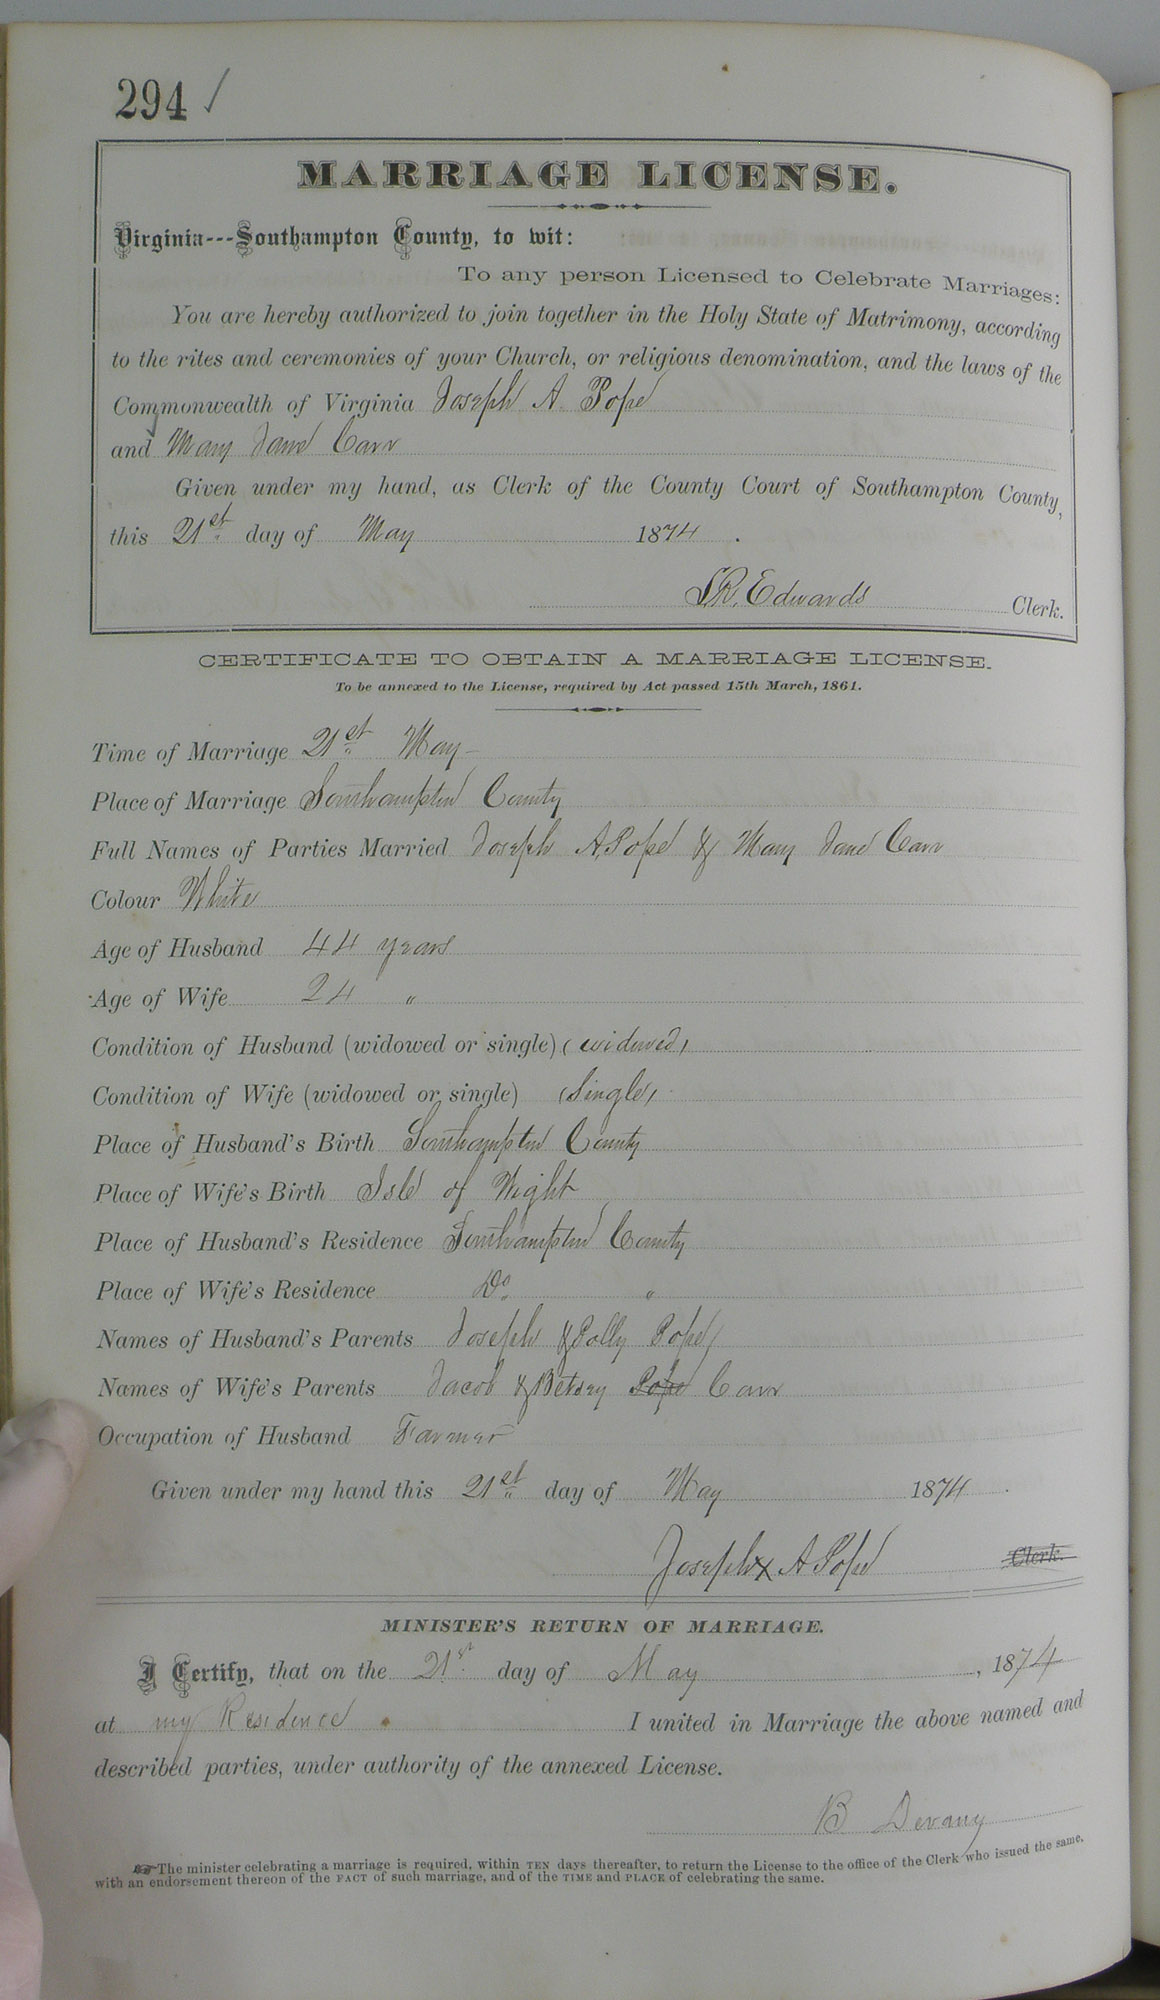 294 ✓
MARRIAGE LICENSE.
Virginia---Southampton County, to wit:
To any person Licensed to Celebrate Marriages:
You are hereby authorized to join together in the Holy State of Matrimony, according
to the rites and ceremonies of your Church, or religious denomination, and the laws of the
Commonwealth of Virginia Joseph A. Pope
and Mary Jane Carr
Given under my hand, as Clerk of the County Court of Southampton County,
this 21st day of May 1874.
L.R. Edwards Clerk.
CERTIFICATE TO OBTAIN A MARRIAGE LICENSE.
To be annexed to the License, required by Act passed 15th March, 1861.
Time of Marriage 21st May
Place of Marriage Southampton County
Full Names of Parties Married Joseph A. Pope & Mary Jane Carr
Colour White
Age of Husband 44 years
Age of Wife 24 "
Condition of Husband (widowed or single) (widowed)
Condition of Wife (widowed or single) (Single)
Place of Husband's Birth Southampton County
Place of Wife's Birth Isle of Wight
Place of Husband's Residence Southampton County
Place of Wife's Residence Do "
Names of Husband's Parents Joseph & Polly Pope
Names of Wife's Parents Jacob & Betsey Pope Carr
Occupation of Husband Farmer
Given under my hand this 21st day of May 1874.
Joseph x A Pope Clerk.
MINISTER'S RETURN OF MARRIAGE.
I Certify, that on the 21st day of May, 1874
at my Residence I united in Marriage the above named and
described parties, under authority of the annexed License.
B Devany
☛The minister celebrating a marriage is required, within TEN days thereafter, to return the License to the office of the Clerk who issued the same,
with an endorsement thereon of the FACT of such marriage, and of the TIME and PLACE of celebrating the same.